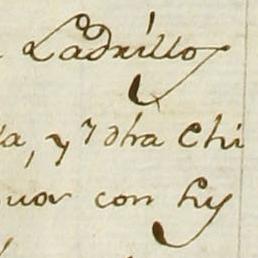 Ladrillo
a, y otra Chi
uar con hy